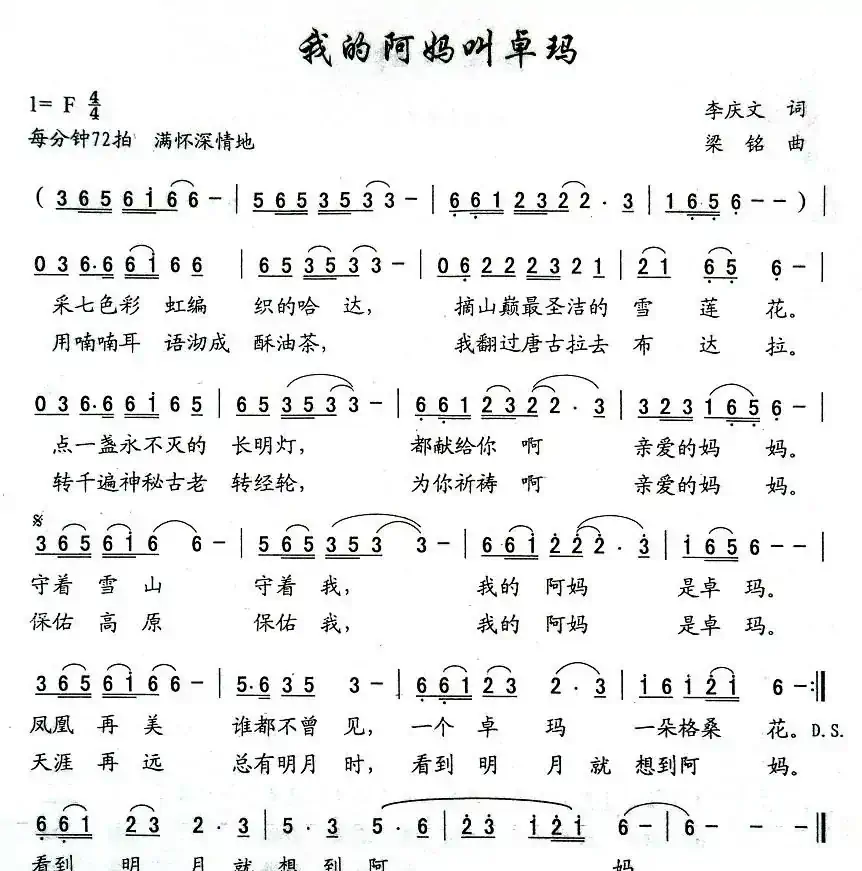 我的阿妈叫卓玛
1= F 4/4
李庆文 词
每分钟72拍 满怀深情地
梁 铭 曲
( 3 6 5 6 1 6 6 - | 5 6 5 3 5 3 3 - | 6 6 1 2 3 2 2 · 3 | 1 6 5 6 - - ) |
0 3 6 · 6 6 1 6 6 | 6 5 3 5 3 3 - | 0 6 2 2 2 2 3 2 1 | 2 1 6 5 6 - |
采七色彩 虹编 织的哈 达, 摘山巅最圣洁的 雪 莲 花。
用喃喃耳 语沏成 酥油茶, 我翻过唐古拉去 布 达 拉。
0 3 6 · 6 6 1 6 5 | 6 5 3 5 3 3 - | 6 6 1 2 3 2 2 · 3 | 3 2 3 1 6 5 6 - |
点一盏永不灭的 长明灯, 都献给你 啊 亲爱的妈 妈。
转千遍神秘古老 转经轮, 为你祈祷 啊 亲爱的妈 妈。
𝄋
3 6 5 6 1 6 6 - | 5 6 5 3 5 3 3 - | 6 6 1 2 2 2 · 3 | 1 6 5 6 - - |
守着 雪 山 守着 我, 我的 阿妈 是卓 玛。
保佑 高 原 保佑 我, 我的 阿妈 是卓 玛。
3 6 5 6 1 6 6 - | 5 · 6 3 5 3 - | 6 6 1 2 3 2 · 3 | 1 6 1 2 1 6 - :||
凤凰 再 美 谁都不曾 见, 一个 卓 玛 一朵格桑 花。 D.S.
天涯 再 远 总有明月 时, 看到 明 月 就 想到阿 妈。
6 6 1 2 3 2 · 3 | 5 · 3 5 · 6 | 2 3 1 2 1 6 - | 6 - - - ||
看到 明 月 就 想 到 阿 妈